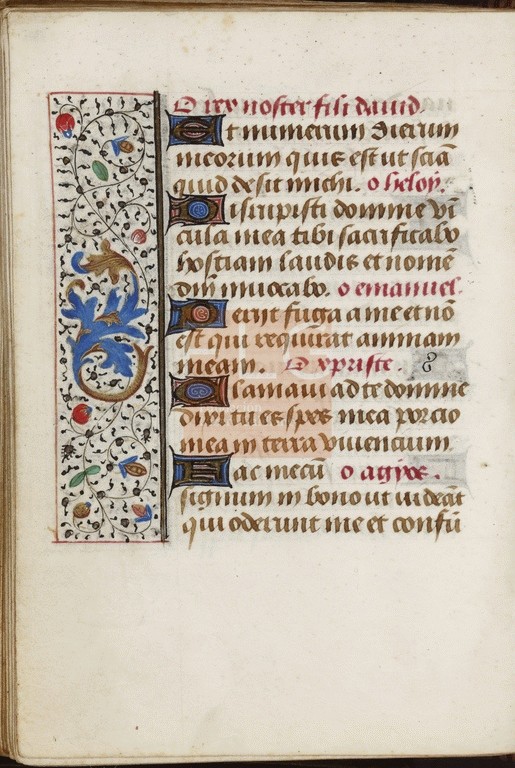 O rex noster fili dauid.
Et numerum dierum
meorum quis est ut sciā
quid desit michi. o heloy.
Disrupisti domine vī
cula mea tibi sacrificabo
hostiam laudis et nomē
dn̄i inuocabo. o emanuel.
Periit fuga a me et nō
est qui requirat animam
meam. O xpriste.
Clamaui ad te domine
dixi tu es spes mea porcio
mea in terra viuencium
Fac mecū o agyos.
signum in bono ut videāt
qui oderunt me et confū